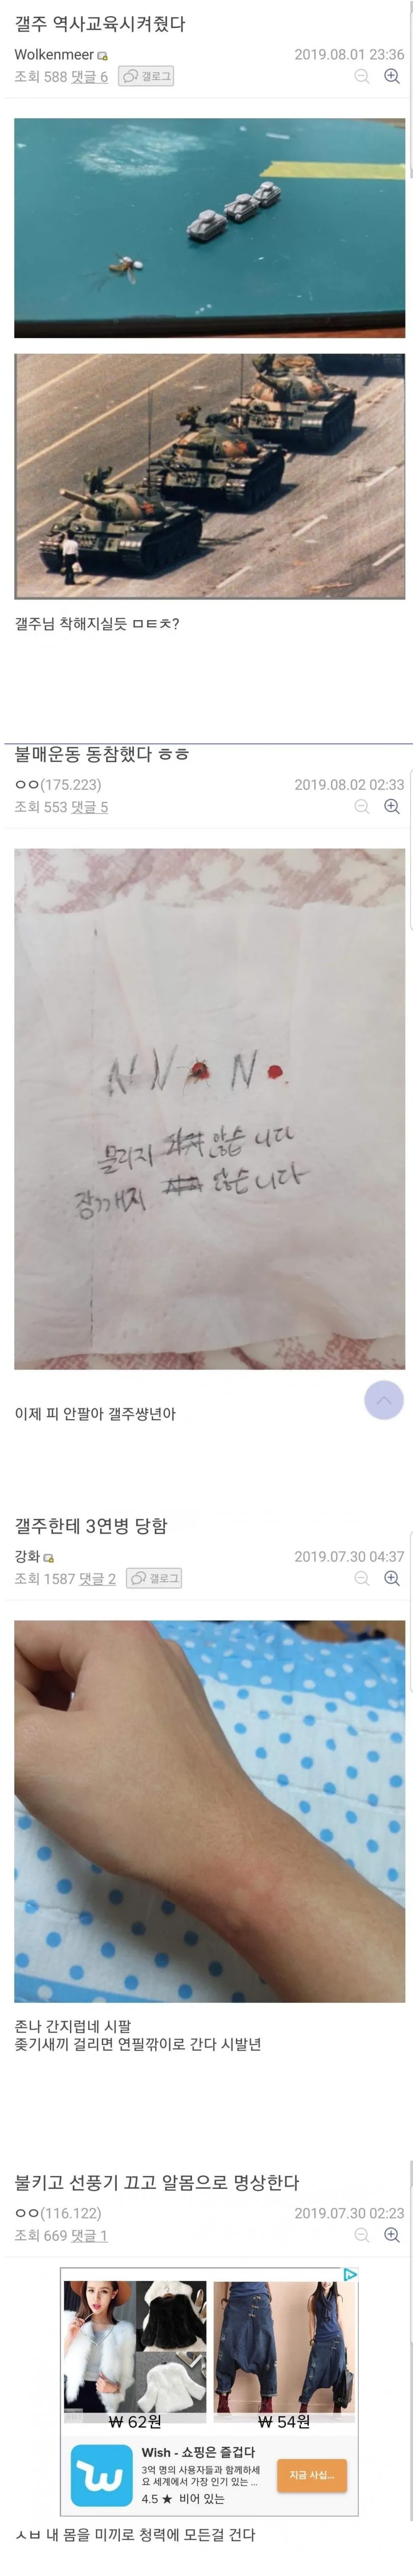 갤주 역사교육시켜줬다
Wolkenmeer 2019.08.01 23:36
조회 588 댓글 6 갤로그
갤주님 착해지실듯 ㅁㅌㅊ?
불매운동 동참했다 ㅎㅎ
ㅇㅇ(175.223) 2019.08.02 02:33
조회 553 댓글 5
N N N
물리지 않습니다
잠깨지 않습니다
이제 피 안팔아 갤주썅년아
갤주한테 3연병 당함
강화 2019.07.30 04:37
조회 1587 댓글 2 갤로그
존나 간지럽네 시팔
좆기새끼 걸리면 연필깎이로 간다 시발년
불키고 선풍기 끄고 알몸으로 명상한다
ㅇㅇ(116.122) 2019.07.30 02:23
조회 669 댓글 1
₩ 62원 ₩ 54원
Wish - 쇼핑은 즐겁다
3억 명의 사용자들과 함께하세
요 세계에서 가장 인기 있는 ...
4.5 ★ 비어 있는
지금 사십...
ㅅㅂ 내 몸을 미끼로 청력에 모든걸 건다